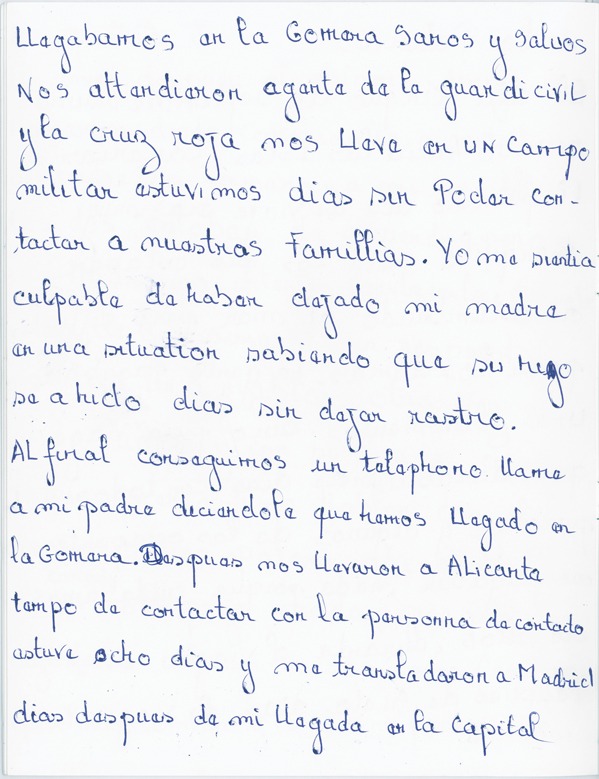 Llegabamos en la Gomera Sanos y Salvos
Nos attendieron agente de la guardi civil
y la cruz roja nos lleve en un campo
militar estuvimos dias sin Poder con-
tactar a nuestras Famillias. Yo me sientia
culpable de haber dejado mi madre
en una situation sabiendo que su higo
se a hido dias sin dejar rastro.
Al final conseguimos un telephono. llame
a mi padre deciendole que hemos llegado en
la Gomera. Despues nos llevaron a Alicante
tempo de contactar con la personna de contado
esture ocho dias y me transladaron a Madrid
dias despues de mi llegada en la Capital